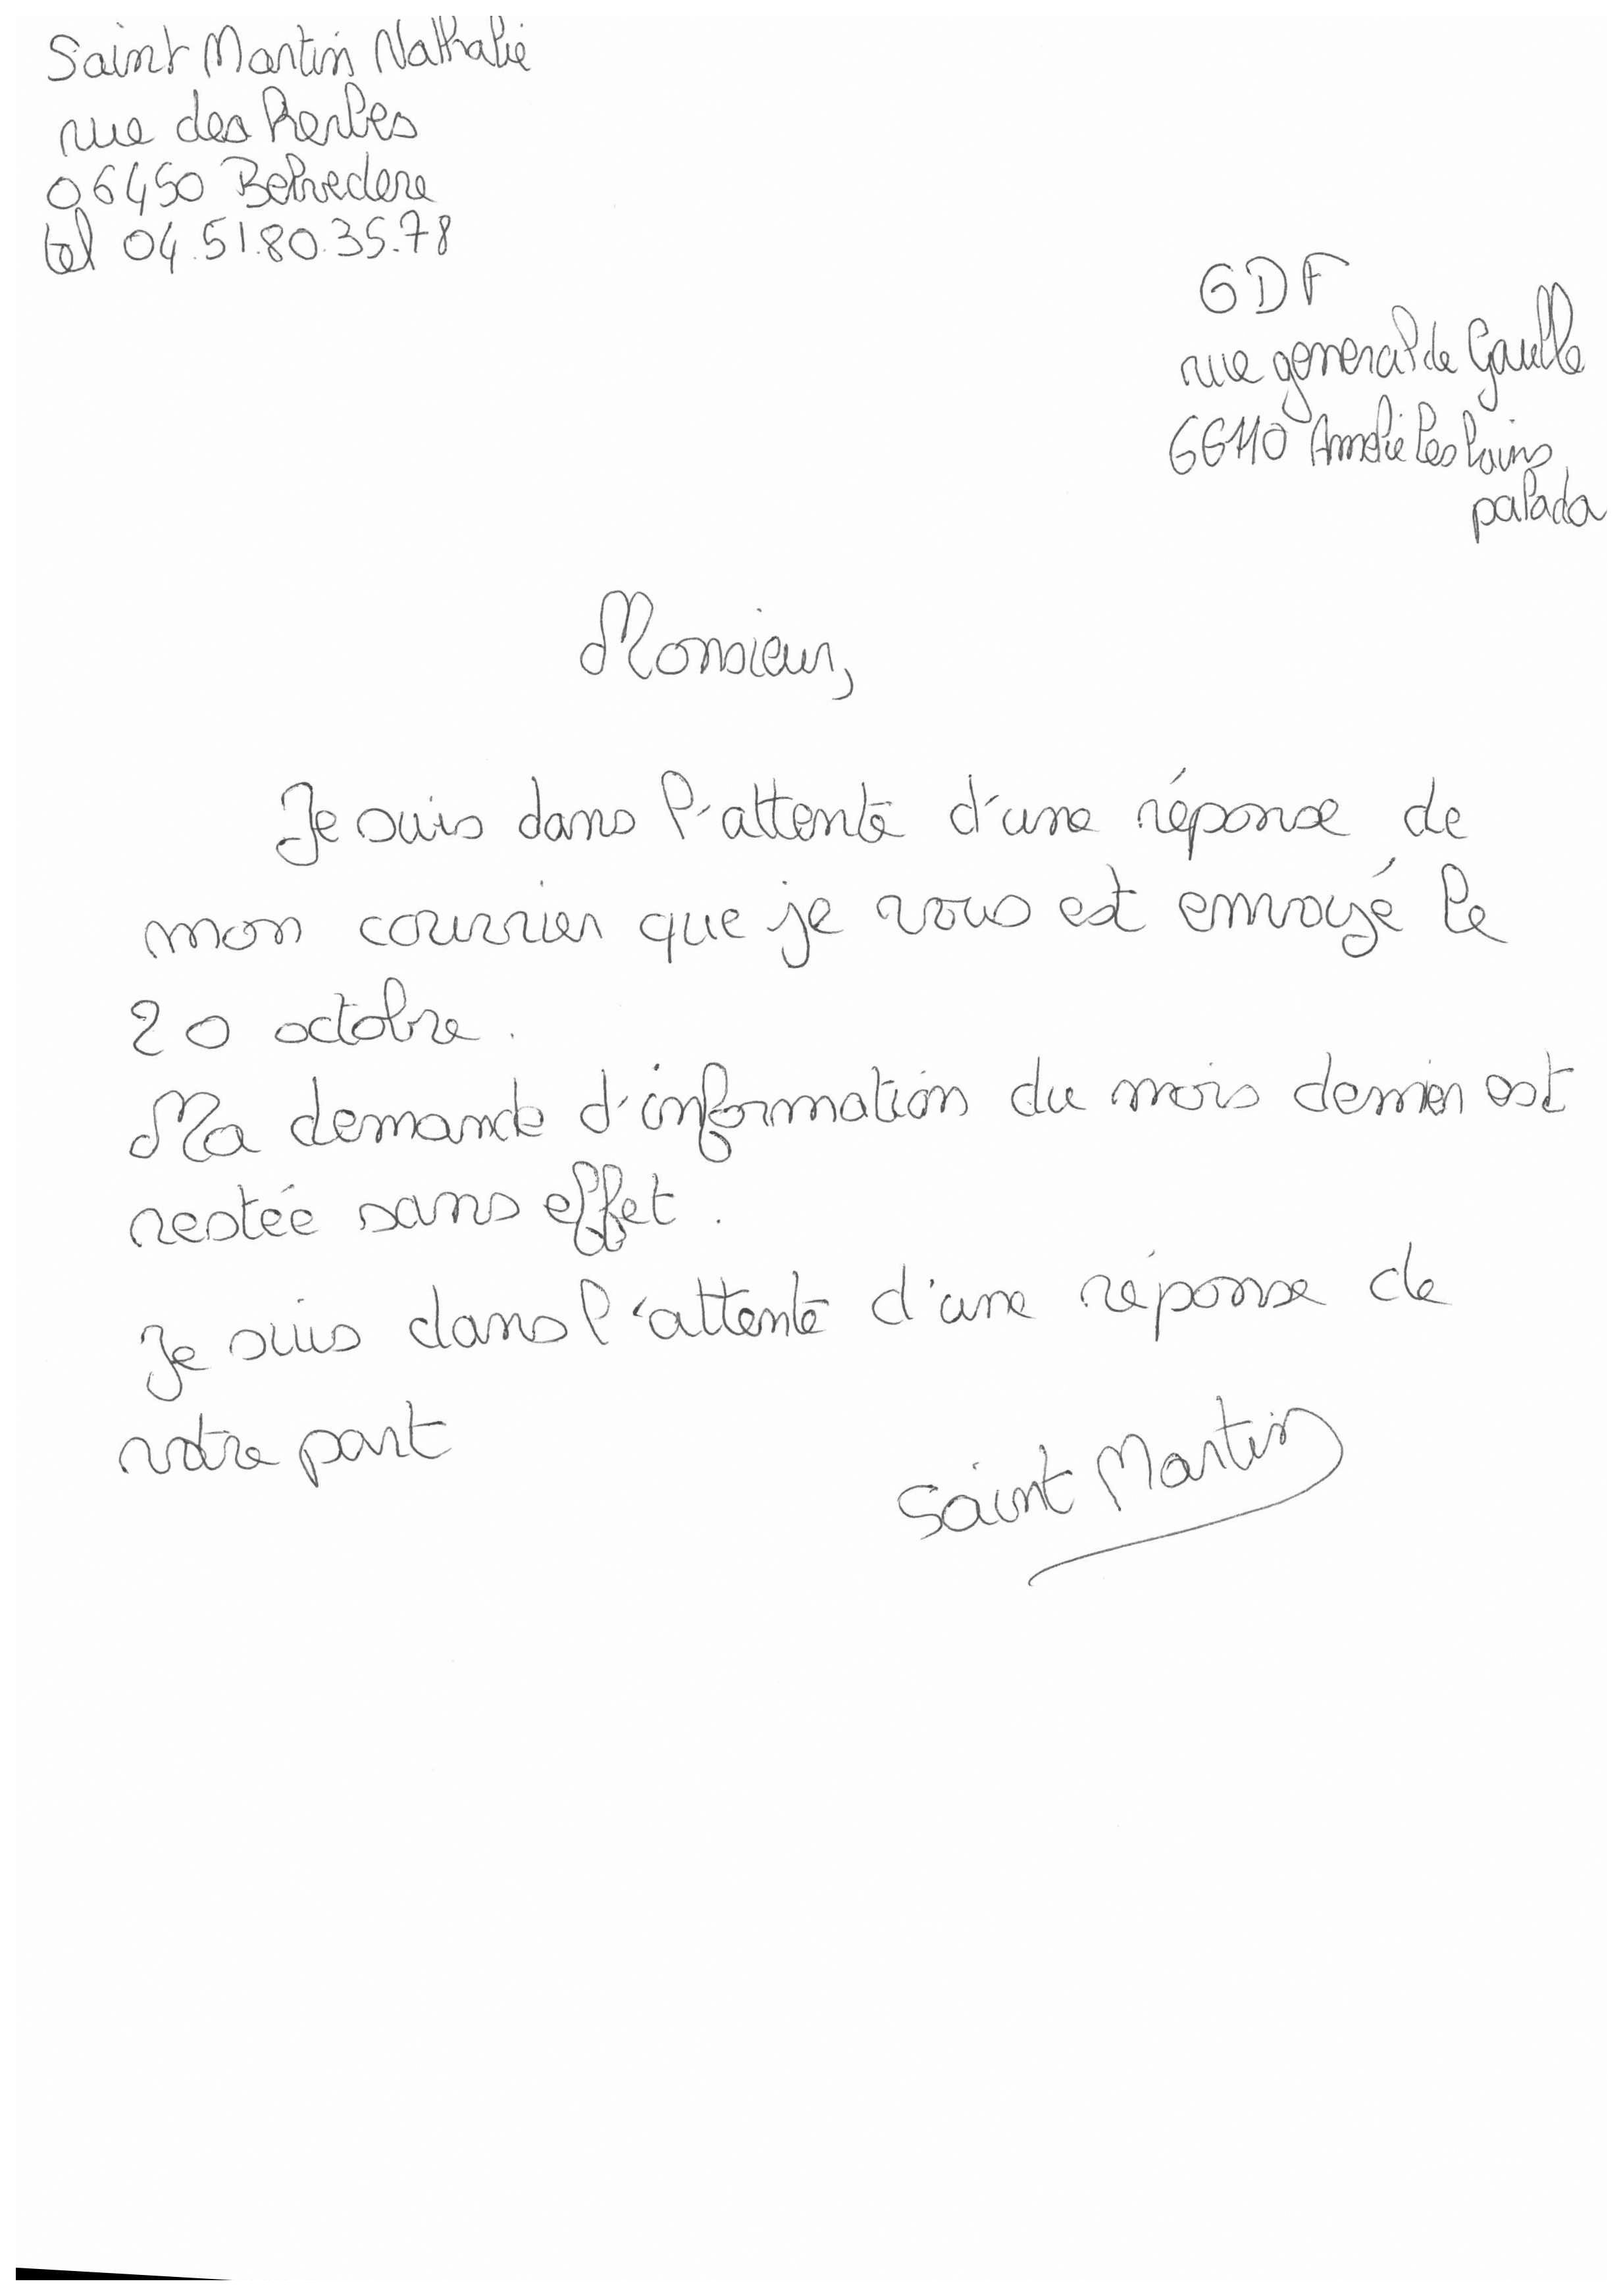 Saint Martin Nathalie
rue des herbes
06450 Belvedere
tel 04.51.80.35.78
GDF
rue general de Gaulle
66110 Amelie les bains
palada
Monsieur,
Je suis dans l'attente d'une réponse de
mon courrier que je vous est envoyé le
20 octobre.
Ma demande d'information du mois dernier est
restée sans effet.
Je suis dans l'attente d'une réponse de
votre part
Saint Martin